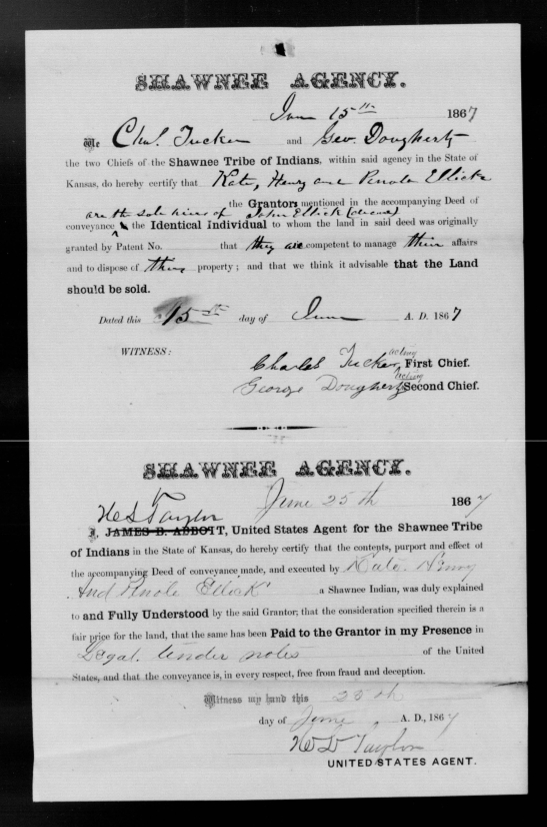 SHAWNEE AGENCY.
June 15th 1867
We Chas. Tucker and Geo. Dougherty
the two Chiefs of the Shawnee Tribe of Indians, within said agency in the State of
Kansas, do hereby certify that Kate, Henry and Penola Ellick
the Grantors mentioned in the accompanying Deed of
are the sole heirs of John Ellick (deceased)
conveyance the Identical Individual to whom the land in said deed was originally
granted by Patent No. that they are competent to manage their affairs
and to dispose of their property; and that we think it advisable that the Land
should be sold.
Dated this 15th day of June A. D. 1867
WITNESS:
Charles Tucker, acting First Chief.
George Dougherty acting Second Chief.
SHAWNEE AGENCY.
June 25th 1867
Taylor
I, JAMES B. ABBOTT, United States Agent for the Shawnee Tribe
of Indians in the State of Kansas, do hereby certify that the contents, purport and effect of
the accompanying Deed of conveyance made, and executed by Kate Henry
And Penola Ellick a Shawnee Indian, was duly explained
to and Fully Understood by the said Grantor; that the consideration specified therein is a
fair price for the land, that the same has been Paid to the Grantor in my Presence in
Legal tender notes of the United
States, and that the conveyance is, in every respect, free from fraud and deception.
Witness my hand this 25th
day of June, A. D., 1867
Taylor
UNITED STATES AGENT.